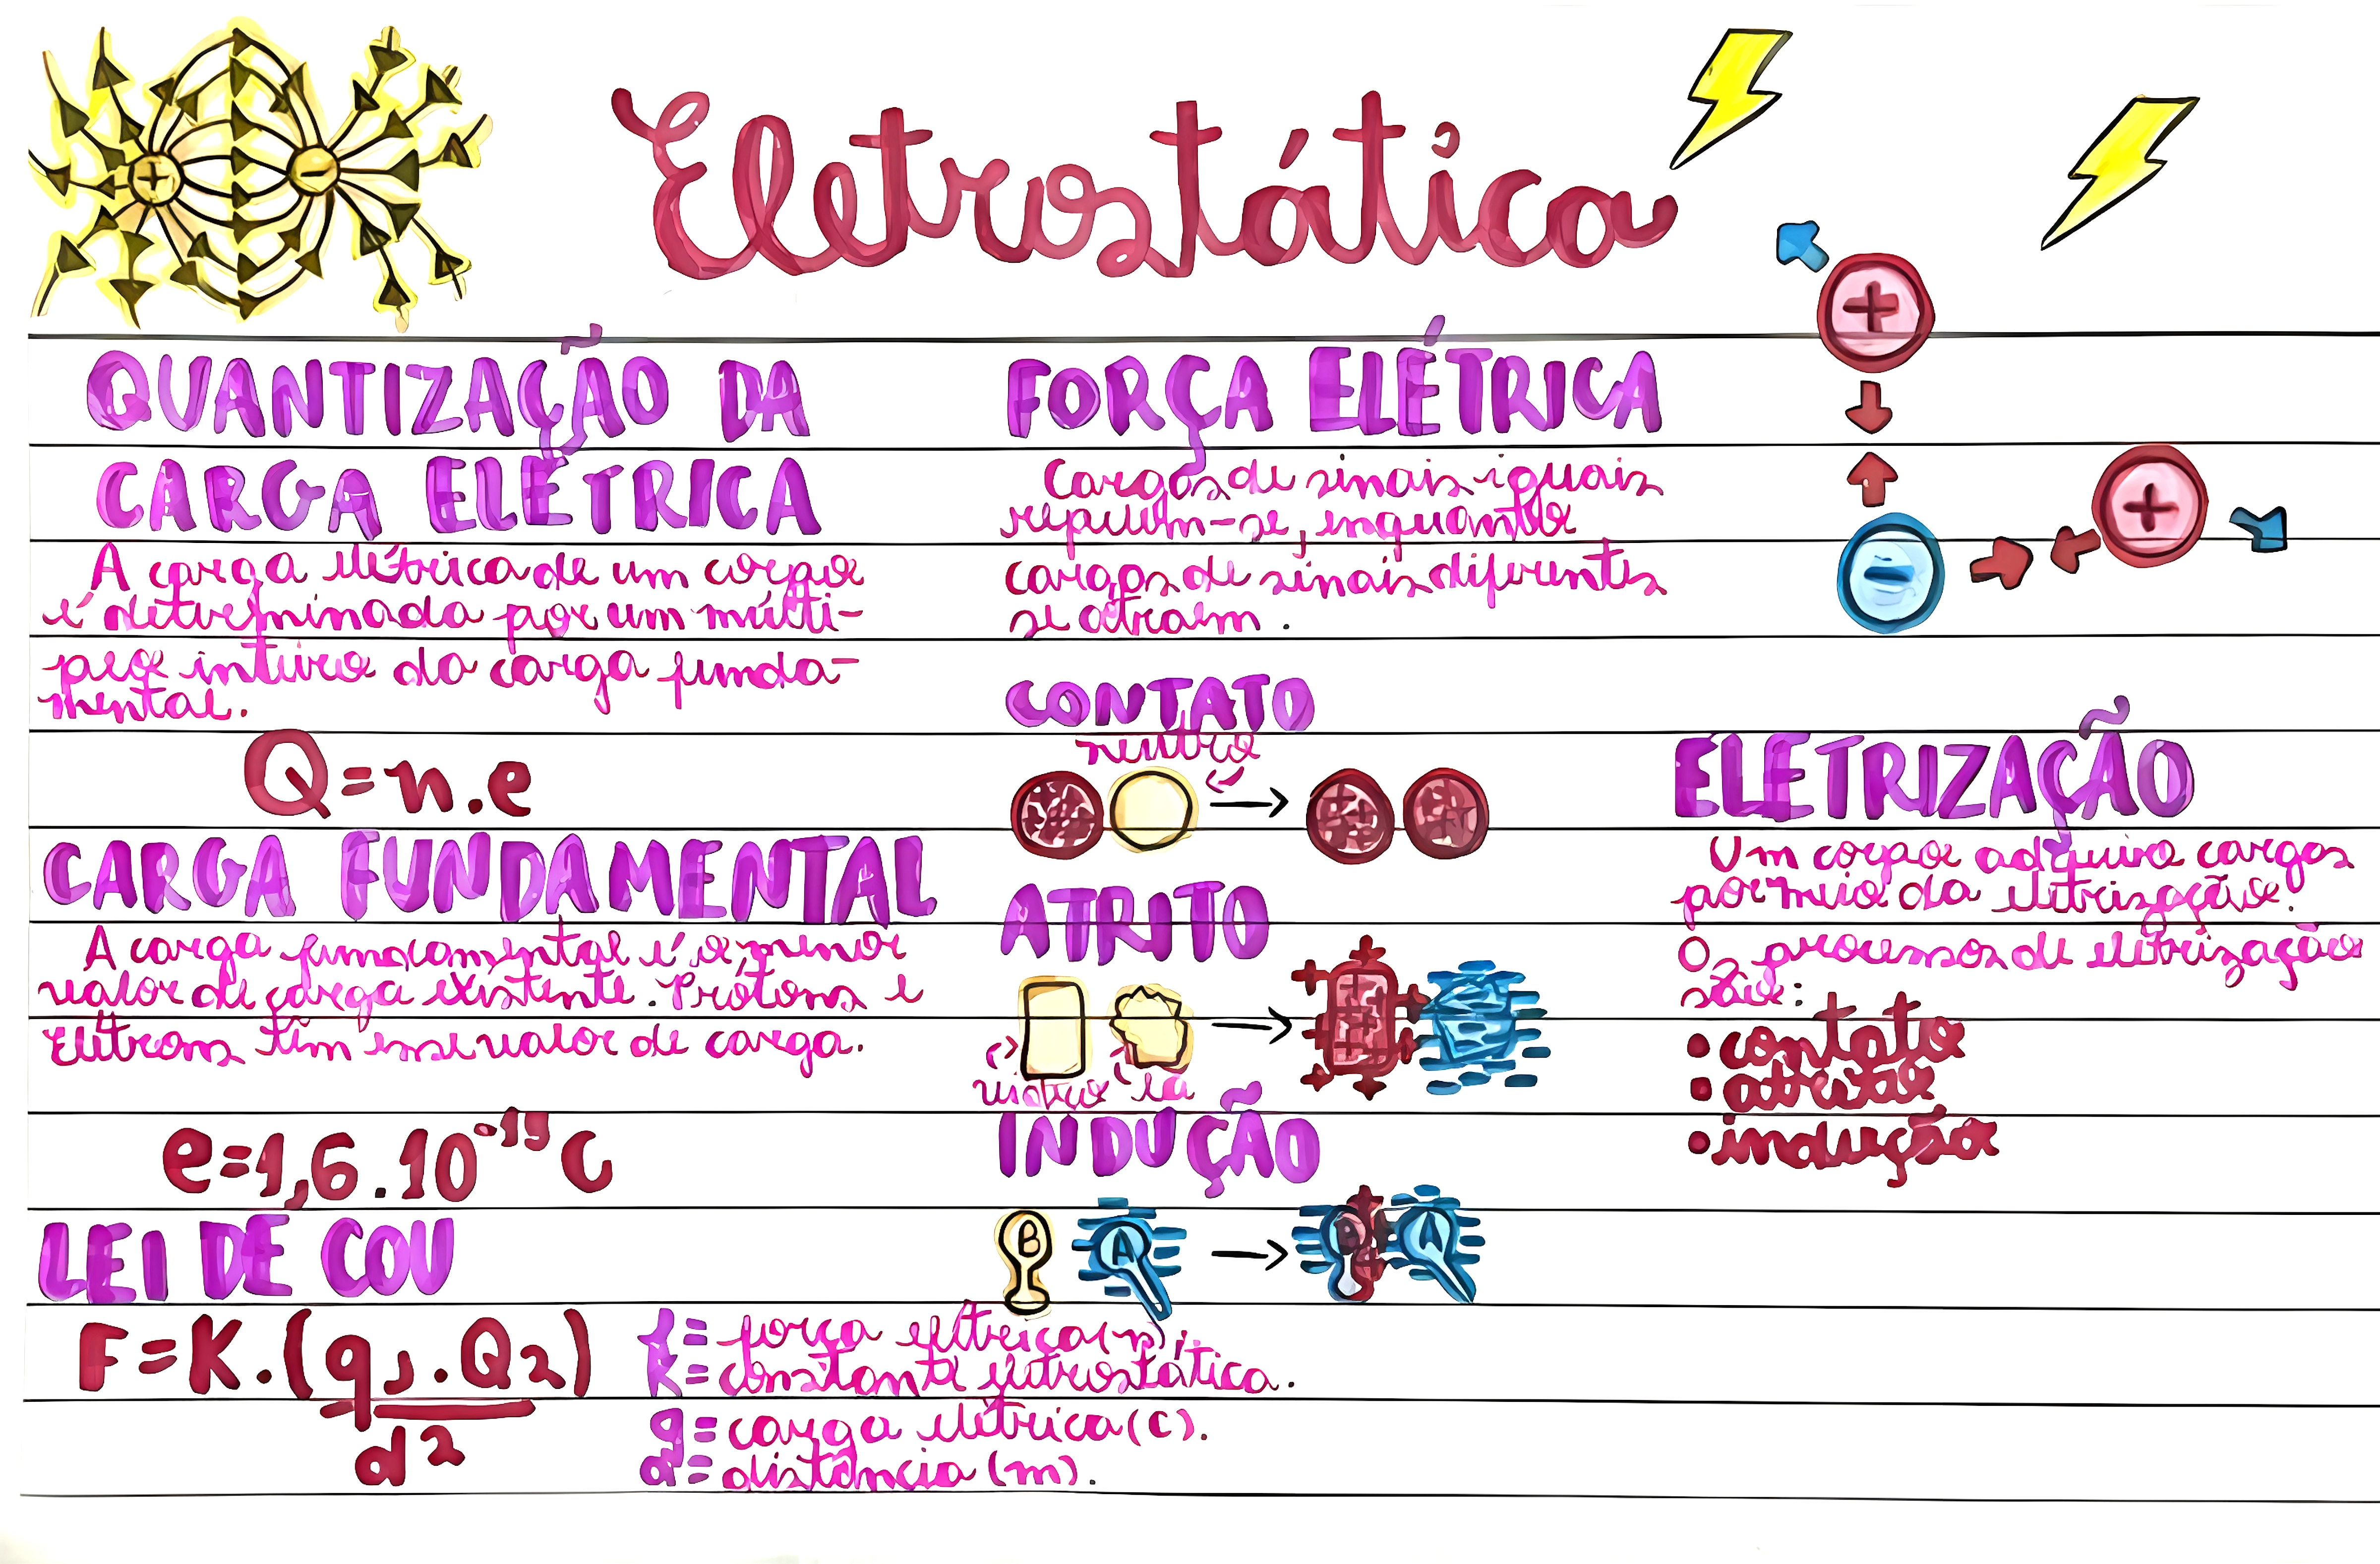 Eletrostática
QUANTIZAÇÃO DA
CARGA ELÉTRICA
A carga elétrica de um corpo
é determinada por um múlti-
plo inteiro da carga funda-
mental.
Q=n.e
CARGA FUNDAMENTAL
A carga fundamental é o menor
valor de carga existente. Prótons e
Elétrons têm esse valor de carga.
e=1,6.10⁻¹⁹C
LEI DE COU
F=K.(q1.Q2)
d²
f= força elétrica(n);
k= constante eletrostática.
q= carga elétrica(C).
d= distância (m).
FORÇA ELÉTRICA
Cargas de sinais iguais
repelem-se, enquanto
cargas de sinais diferentes
se atraem.
CONTATO
neutro
ATRITO
vidro lã
INDUÇÃO
B A B A
+
+
-
ELETRIZAÇÃO
Um corpo adquire cargas
por meio da eletrização.
Os processos de eletrização
são:
• contato
• atrito
• indução